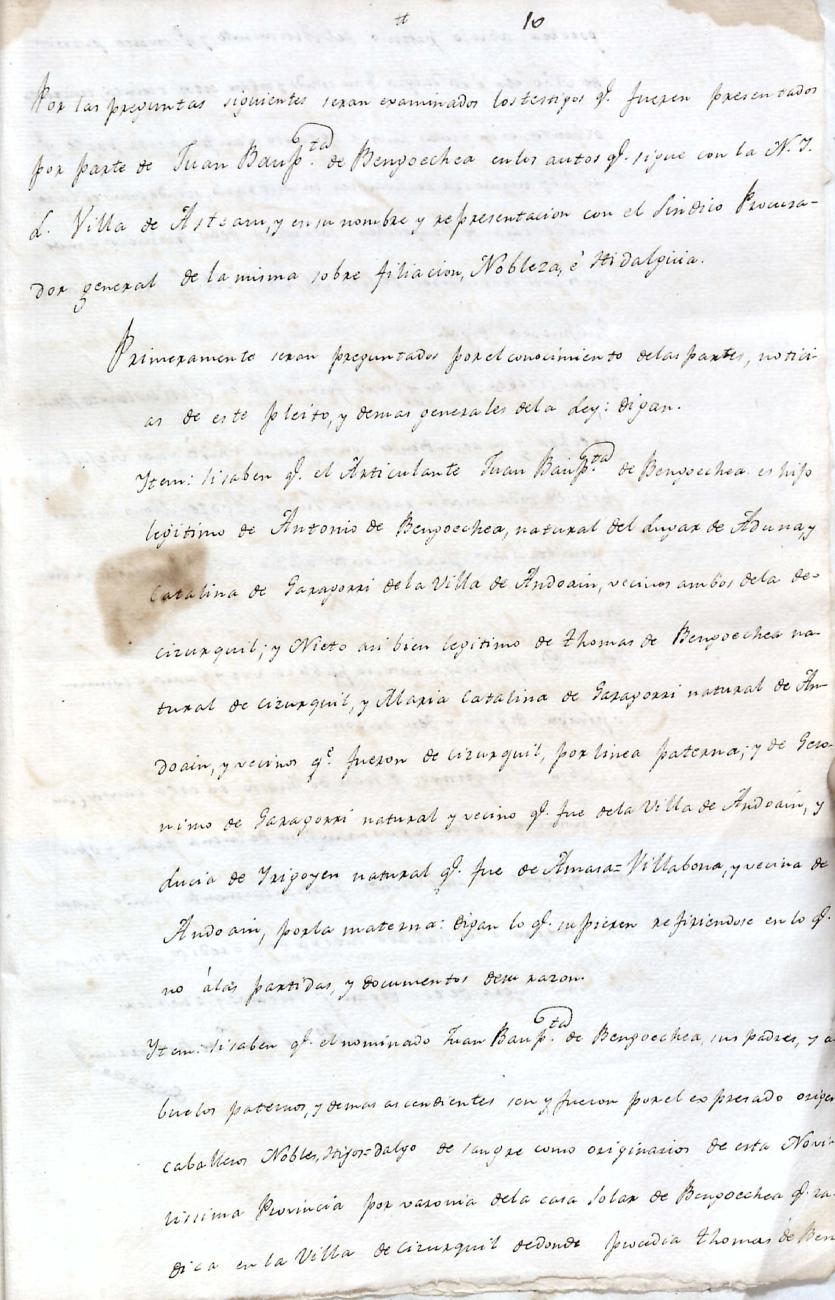 10
Por las preguntas siguientes seran examinados los testigos q.e fueren presentados
por parte de Juan Baup.ta de Bengoechea en los autos q.e sigue con la N. Y.
L. Villa de Asteasu, y en su nombre y representacion con el Sindico Procura-
dor general de la misma sobre filiacion, Nobleza, è Hidalguia.
Primeramente seran preguntados por el conocimiento delas partes, notici-
as de este pleito, y demas generales dela Ley: digan.
Ytem: si saben q.e el Articulante Juan Baup.ta de Bengoechea es hijo
legitimo de Antonio de Bengoechea, natural del Lugar de Aduna, y
Catalina de Garagorri dela Villa de Andoain, vecinos ambos dela de
Cizurquil; y Nieto asi bien legitimo de Thomas de Bengoechea na-
tural de Cizurquil, y Maria Catalina de Garagorri natural de An-
doain, y vecinos q.e fueron de Cizurquil, por linea paterna; y de Gero-
nimo de Garagorri natural y vecino q.e fue dela Villa de Andoain, y
Lucia de Yrigoyen natural q.e fue de Amasa=Villabona, y vecina de
Andoain, por la materna: digan lo q.e supieren refiriendose en lo q.e
no álas partidas, y documentos desu razon.
Ytem: si saben q.e el nominado Juan Baup.ta de Bengoechea, sus padres, y a
buelos paternos, y demas ascendientes son y fueron por el expresado origen
caballeros Nobles, Hijos=dalgo de sangre como originarios de esta Novi-
lissima Provincia por varonia dela casa solar de Bengoechea q.e ra-
dica en la Villa de Cizurquil dedonde procedia Thomas de Ben